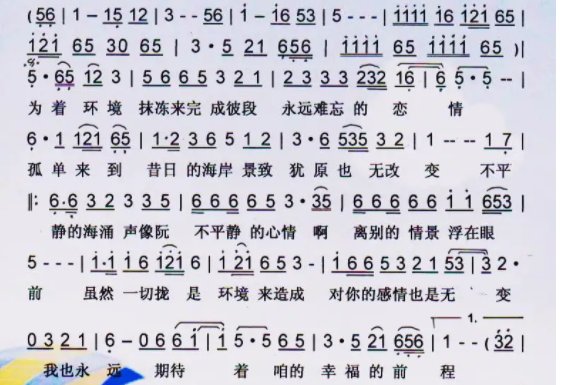 (56 | 1 - 15 12 | 3 - - 56 | 1 - 16 53 | 5 - - - | 1111 16 121 65 |
121 65 30 65 | 3 · 5 21 656 | 1111 65 1111 65 )|
5 · 65 12 3 | 5 6 6 5 3 2 1 | 2 3 3 3 232 16 | 6 5 · 5 - - |
为 着 环 境 抹冻来完 成彼段 永远难忘 的 恋 情
6 · 1 121 65 | 1·2 3 6 5 1 2 | 3 · 6 535 3 2 | 1 - - 1 7 |
孤 单 来 到 昔日 的海岸 景致 犹 原 也 无改 变 不平
‖: 6·6 3 2 3 3 5 | 6 6 6 6 5 3 · 35 | 6 6 6 6 6 1 1 653 |
静的海涌 声像阮 不平静 的心情 啊 离别的 情景 浮在眼
5 - - - | 1·1 1 6 121 6 | 121 6 5 3 - | 1 6 6 5 3 2 1 53 | 3 2 ·
前 虽然 一切拢 是 环境 来造成 对你的感情也是无 变
0 3 2 1 | 6 - 0 6 6 1 | 1 5 · 5 6 5 | 3 · 5 21 656 | 1 - - ( 32 |
1.
我也永 远 期待 着 咱的 幸 福 的 前 程